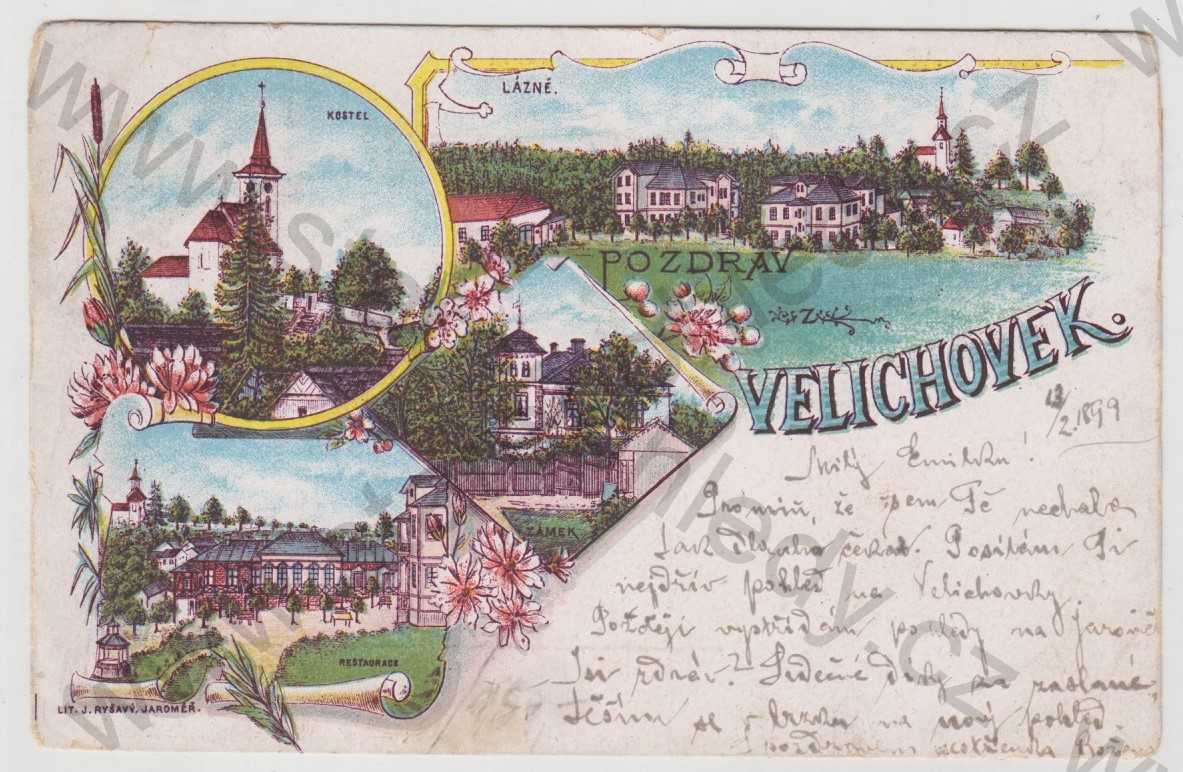 KOSTEL
LÁZNĚ.
POZDRAV
Z
VELICHOVEK.
ZÁMEK
RESTAURACE
LIT. J. RYŠAVÝ, JAROMĚŘ.
12/2.1899
Milý Emilku!
Promiň, že jsem Tě nechala
tak dlouho čekat. Posílám Ti
nejdřív pohled na Velichovky
Později vystřídám pohledy na Jaroměř
Jsi zdráv? Srdečné díky za zaslané
Těším se brzku na nový pohled.
pozdravem sestřenka Božena